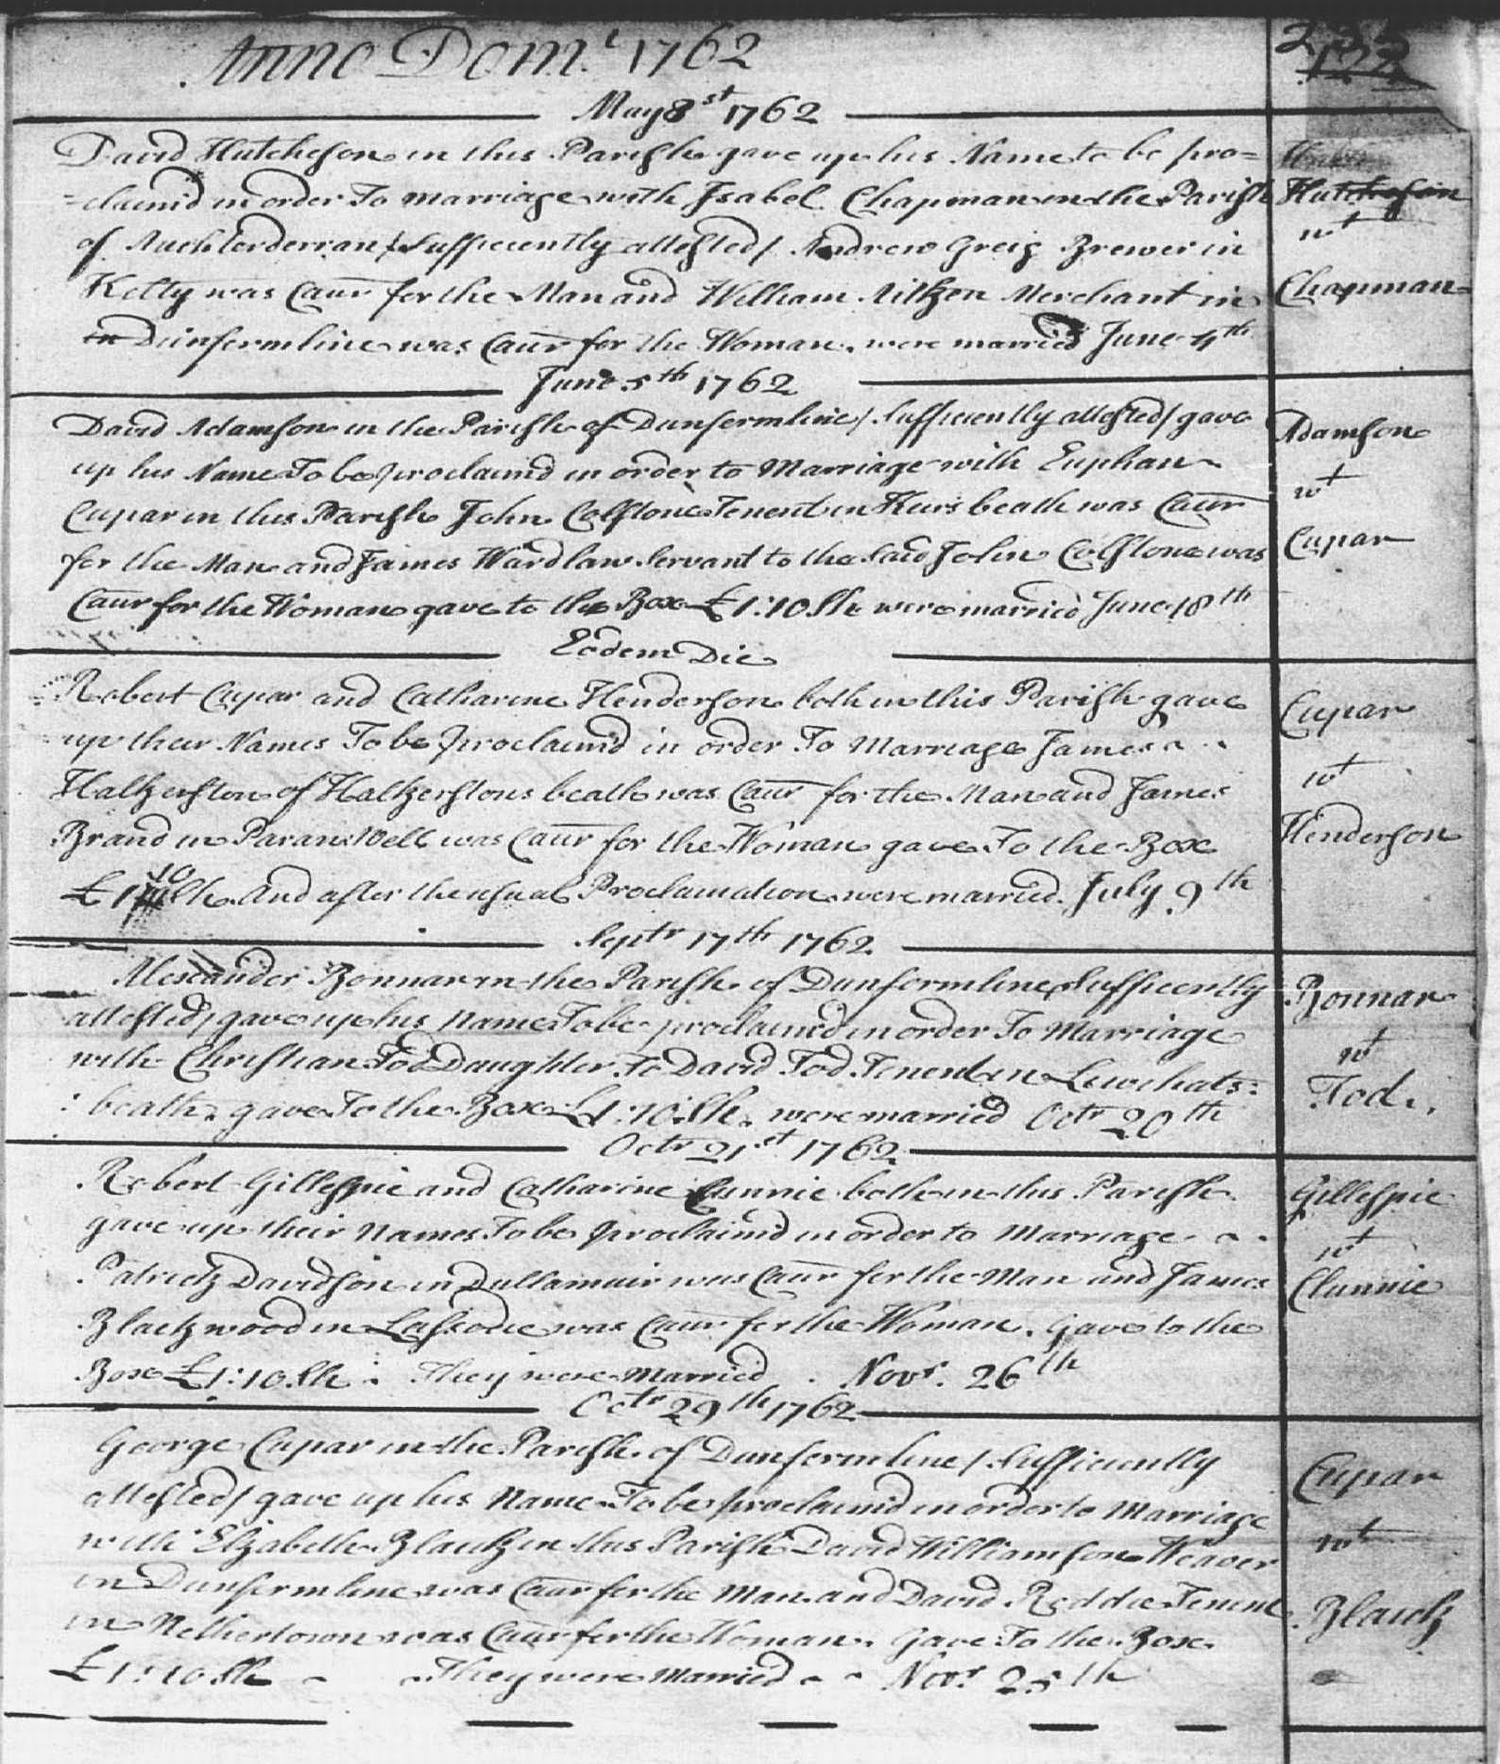 Anno Dom. 1762
May 8st 1762
David Hutcheson in this Parish gave up his Name to be pro=
=claim'd in order To marriage with Isabel Chapman in the Parish
of Auchterderran /Sufficiently attested/ Andrew Greig Brewer in
Kelty was Caur for the Man and William Aitken Merchant in
in Dunfermline was Caur for the Woman. were married June 4th
Hutcheson
wt
Chapman
June 5th 1762
David Adamson in the Parish of Dunfermline / Sufficiently attested / gave
up his Name To be proclaimd in order to Marriage with Euphan
Cupar in this Parish John Colstone Tenent in Keirs beath was Caur
for the Man and James Wardlaw Servant to the said John Colstone was
Caur for the Woman gave to the Box £1:10 Sh were married June 18th
Adamson
wt
Cupar
Eodem Die
Robert Cupar and Catharine Henderson both in this Parish gave
up their Names To be proclaimd in order To Marriage James
Halkerston of Halkerstons beath was Caur for the Man and James
Brand in Paran Well was Caur for the Woman gave To the Box
£1 10 Sh. And after the usual Proclamation were married July 9th
Cupar
wt
Henderson
Septr 17th 1762
Alexander Bonnar in the Parish of Dunfermline /Sufficently
attested/ gave up his Name To be proclaimed in order To Marriage
with Christian Tod Daughter To David Tod Tenent in Leuchats:
: beath. gave To the Box £1:10 Sh. were married Octr 20th
Bonnar
wt
Tod.
Octr 21st 1762
Robert Gillespie and Catharine Cunnie both in this Parish
gave up their Names To be proclaimd in order to Marriage
Patrick Davidson in Dullamuir was Caur for the Man and James
Blackwood in Lassodie was Caur for the Woman. Gave to the
Box £1:10 Sh. They were Married Novr. 26th
Gillespie
wt
Clunnie
Octr 29th 1762
George Cupar in the Parish of Dunfermline / Sufficiently
attested/ gave up his Name To be proclaimd in order to Marriage
with Elizabeth Black in this Parish David Williamson Weaver
in Dunfermline was Caur for the Man and David Reddie Tenent
in Nethertown was Caur for the Woman. Gave To the Box
£1:10 Sh They were Married Novr 25th
Cupar
wt
Black